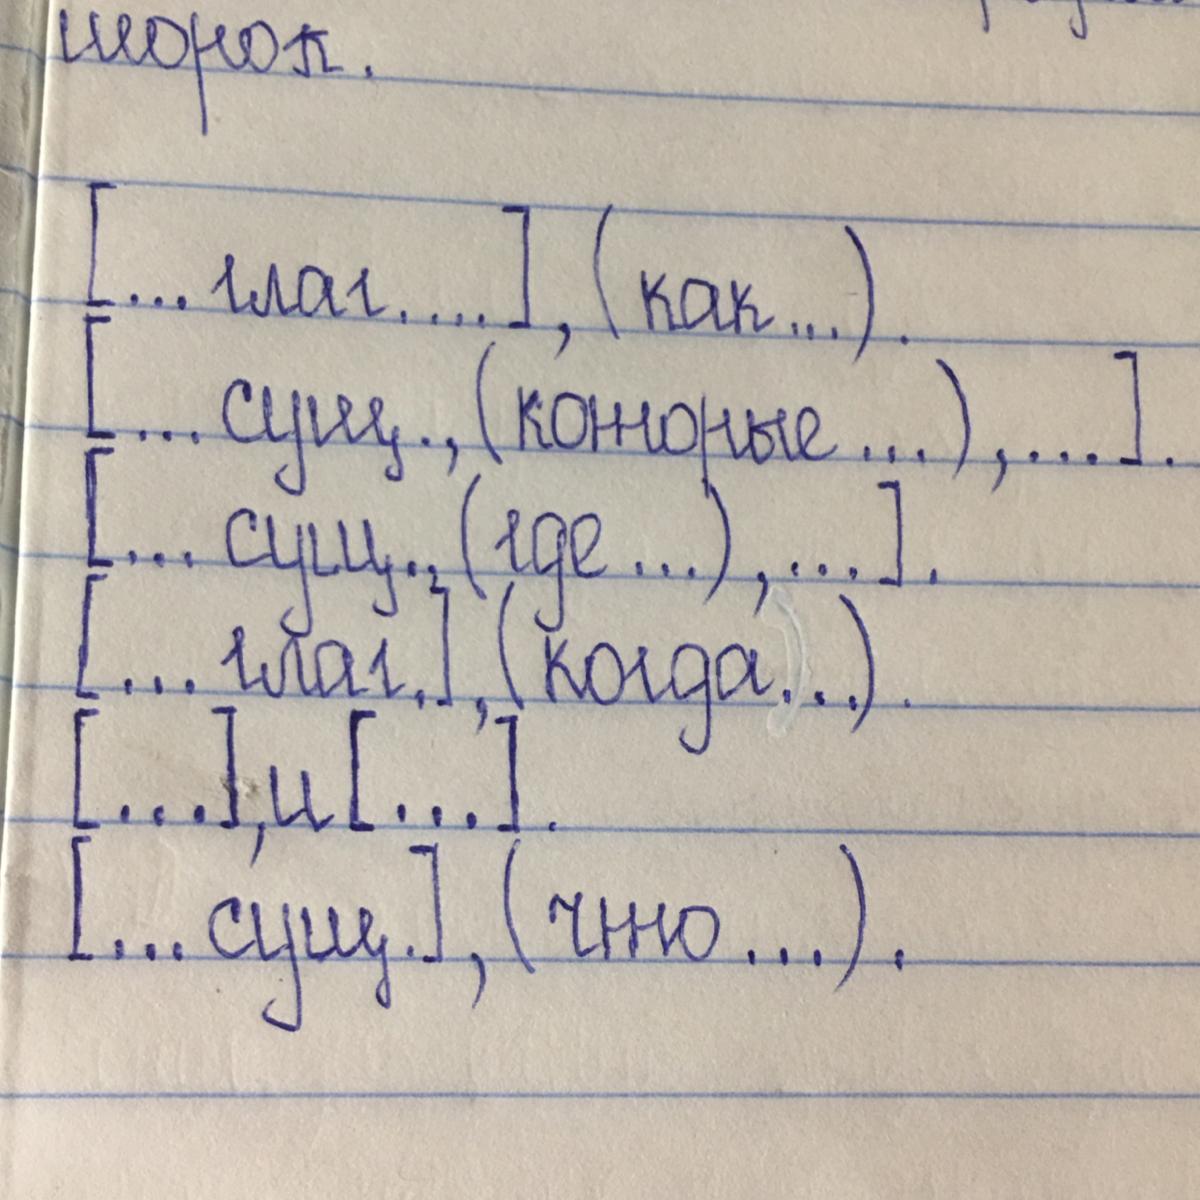 шорок.
[... глаг. ...], (как ...).
[... сущ., (которые ...), ...].
[... сущ., (где ...), ...].
[... глаг.], (когда ...).
[...], и [...].
[... сущ.], (что ...).